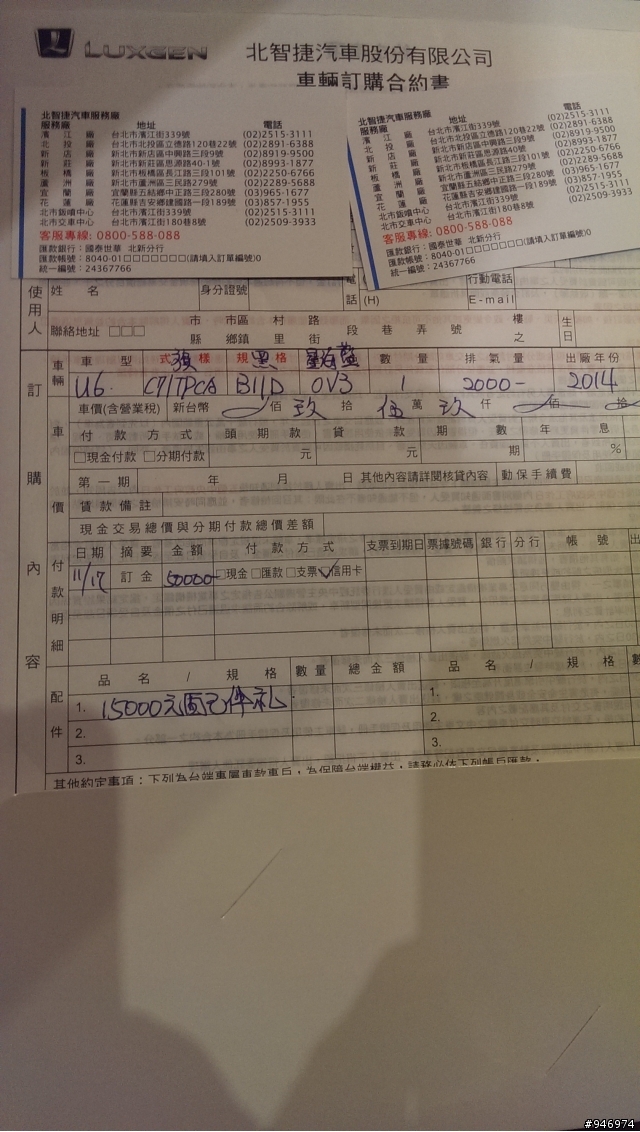 LUXGEN 北智捷汽車股份有限公司
車輛訂購合約書
北智捷汽車服務廠
服務廠 地址 電話
濱江廠 台北市濱江街339號 (02)2515-3111
北投廠 台北市北投區立德路120巷22號 (02)2891-6388
新店廠 新北市新店區中興路三段9號 (02)8919-9500
新莊廠 新北市新莊區思源路40-1號 (02)8993-1877
板橋廠 新北市板橋區長江路三段101號 (02)2250-6766
蘆洲廠 新北市蘆洲區三民路279號 (02)2289-5688
宜蘭廠 宜蘭縣五結鄉中正路三段280號 (03)965-1677
花蓮廠 花蓮縣吉安鄉建國路一段189號 (03)857-1955
北市鈑噴中心 台北市濱江街339號 (02)2515-3111
北市交車中心 台北市濱江街180巷8號 (02)2509-3933
客服專線: 0800-588-088
匯款銀行：國泰世華 北新分行
匯款帳號：8040-01□□□□□□□(請填入訂單編號)0
統一編號：24367766
北智捷汽車服務廠
服務廠 地址 電話
濱江廠 台北市濱江街339號 (02)2515-3111
北投廠 台北市北投區立德路120巷22號 (02)2891-6388
新店廠 新北市新店區中興路三段9號 (02)8919-9500
新莊廠 新北市新莊區思源路40號 (02)8993-1877
板橋廠 新北市板橋區長江路三段101號 (02)2250-6766
蘆洲廠 新北市蘆洲區三民路279號 (02)2289-5688
宜蘭廠 宜蘭縣五結鄉中正路三段280號 (03)965-1677
花蓮廠 花蓮縣吉安鄉建國路一段189號 (03)857-1955
北市鈑噴中心 台北市濱江街339號 (02)2515-3111
北市交車中心 台北市濱江街180巷8號 (02)2509-3933
客服專線: 0800-588-088
匯款銀行：國泰世華 北新分行
匯款帳號：8040-01□□□□□□□(請填入訂單編號)0
統一編號：24367766
使用人 姓名 身分證號 電話 (H) 行動電話
E-mail
聯絡地址 □□□ 市縣 市區鄉鎮 村里 路街 段 巷 弄 號 樓之 生日
訂購內容
車輛 車型 式樣 規格 黑 藍 數量 排氣量 出廠年份
U6 C7/TPCA B11D 0V3 1 2000- 2014
車價 車價(含營業稅) 新台幣 佰 玖 拾 伍 萬 玖 仟 佰 拾
付款方式 頭期款 貸款 期數 年息
□現金付款 □分期付款 元 元 期 %
第一期 年 月 日 其他內容請詳閱核貸內容 動保手續費
貸款備註
現金交易總價與分期付款總價差額
付款明細 日期 摘要 金額 付款方式 支票到期日 票據號碼 銀行 分行 帳號 出
11/17 訂金 50000- □現金 □匯款 □支票 ✓信用卡
配件 品名 / 規格 數量 總金額 品名 / 規格 數
1. 15000元配件礼 1.
2. 2.
3. 3.
其他約定事項：下列為台端專屬車款專戶，為保障台端權益，請務必依下列帳戶匯款，
#946974